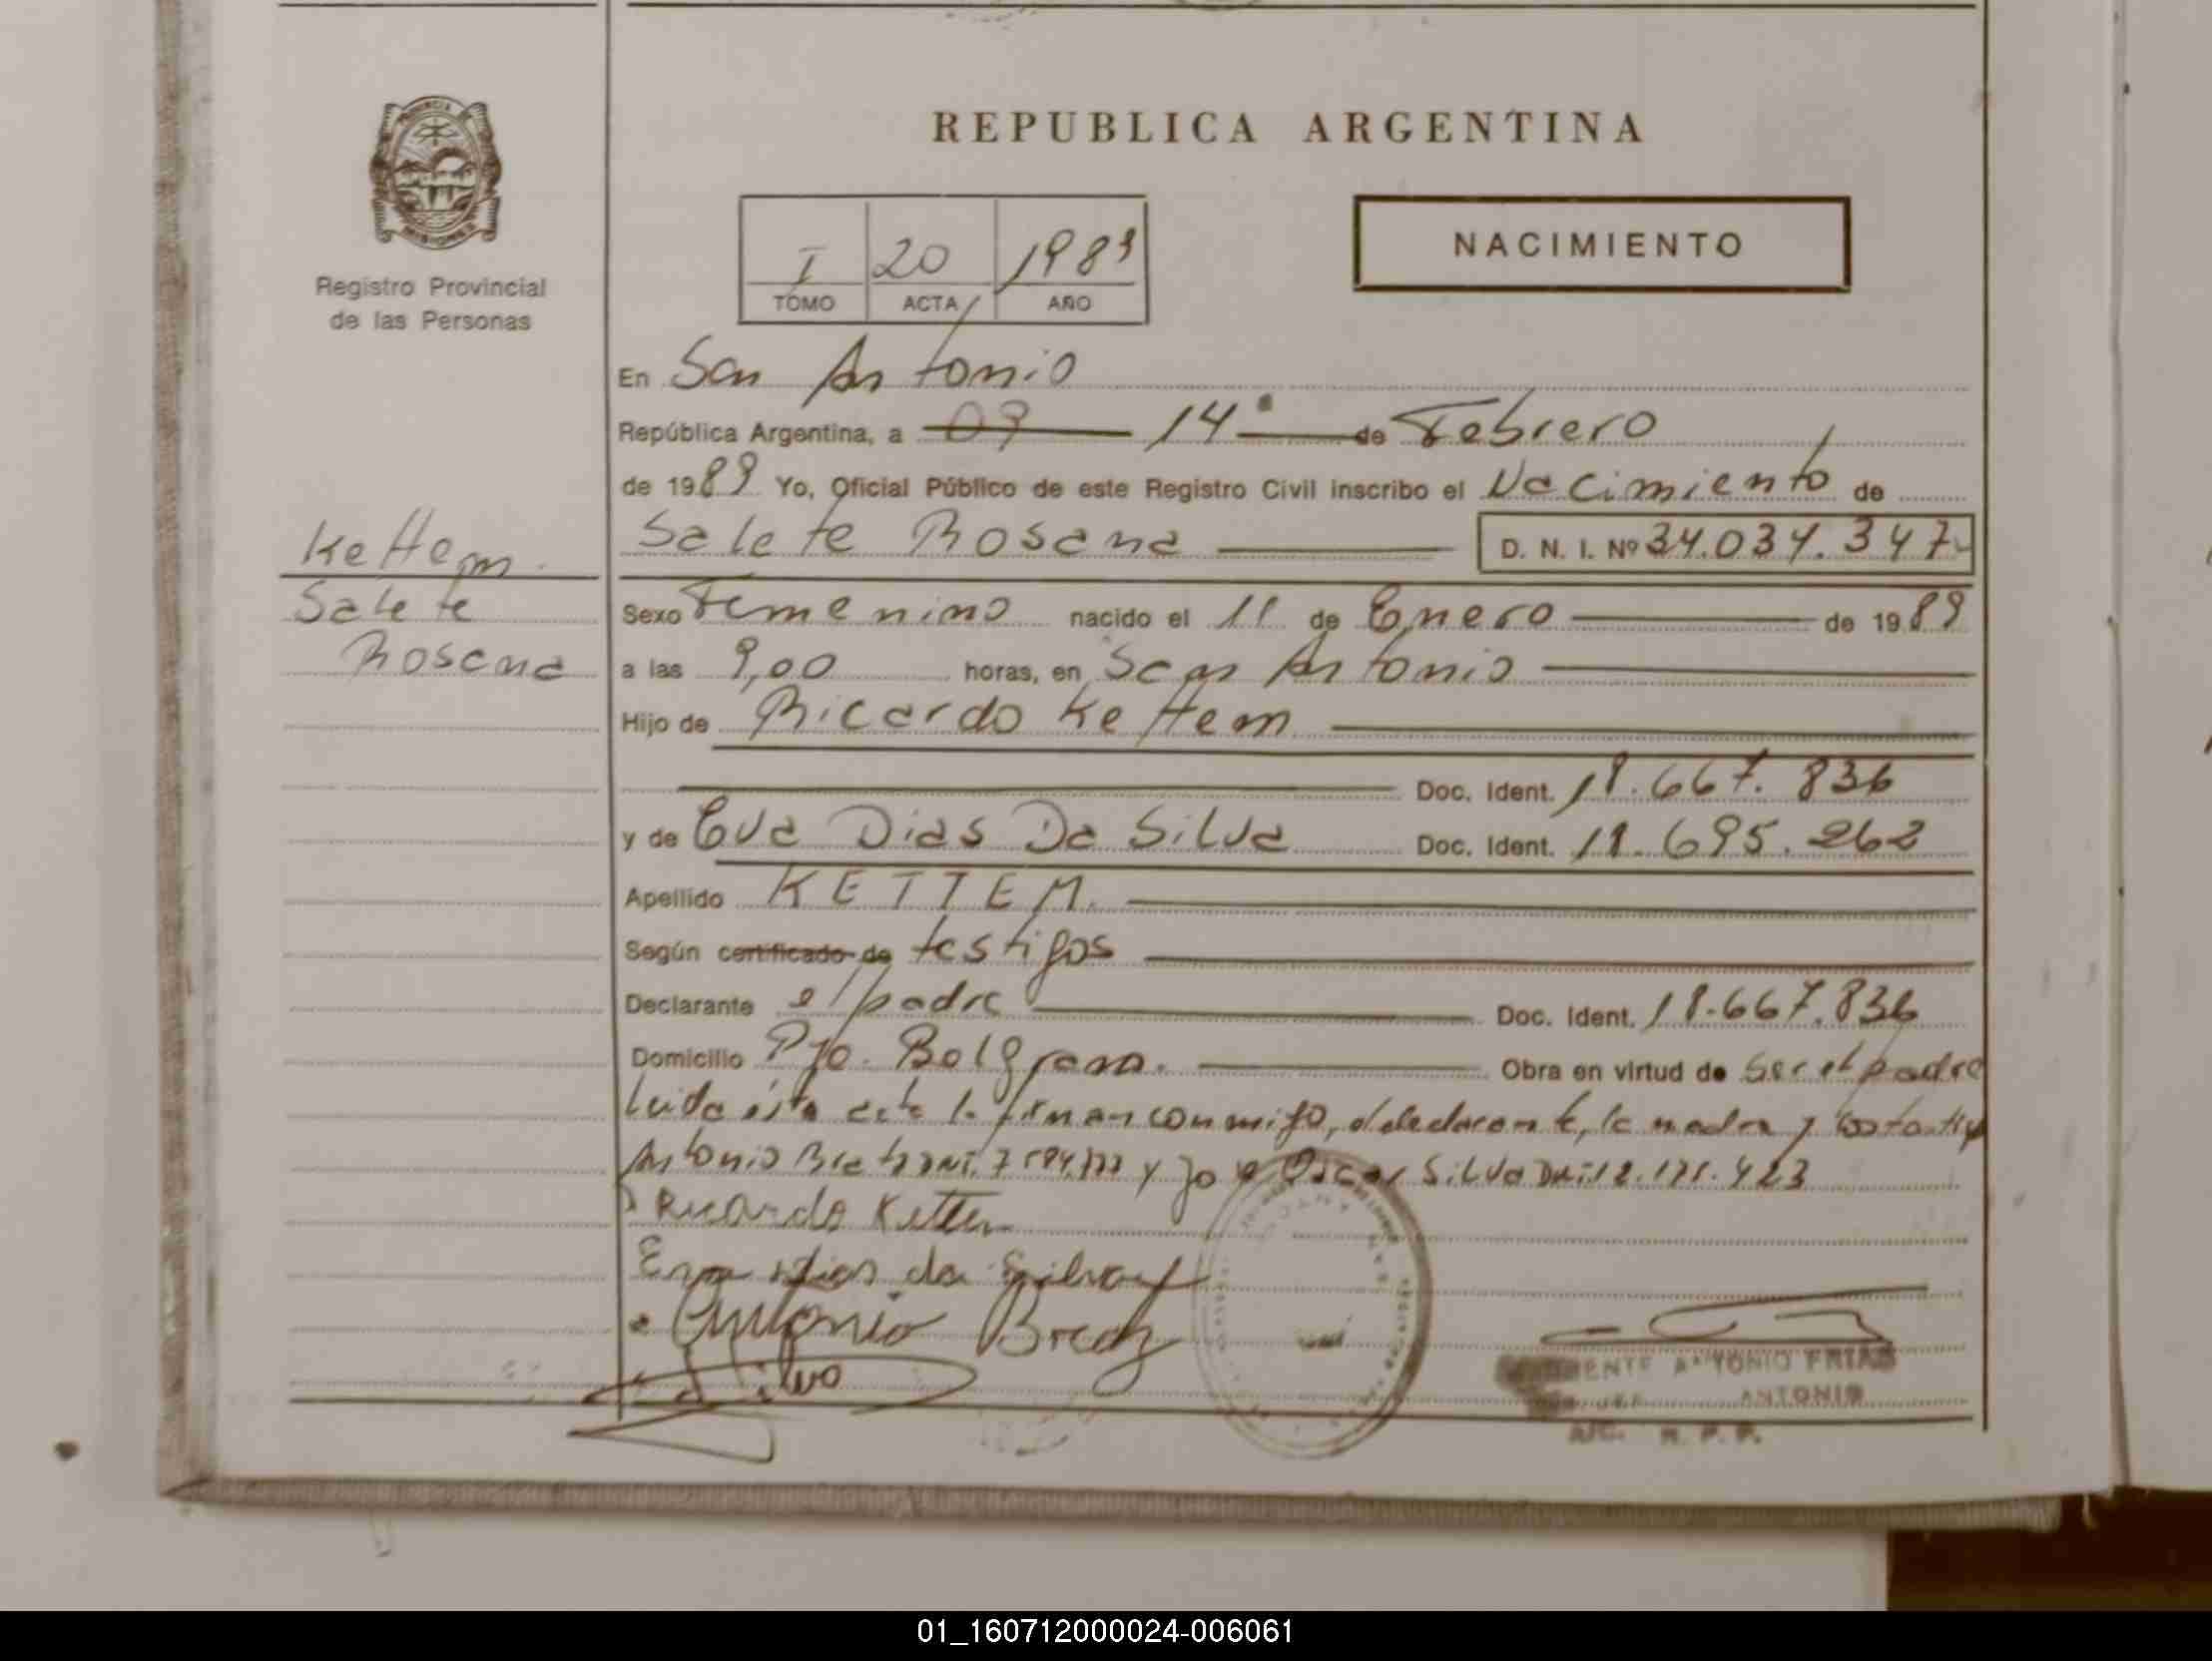 REPUBLICA ARGENTINA
NACIMIENTO
I 20 1989
TOMO ACTA AÑO
MISIONES
Registro Provincial
de las Personas
En San Antonio
República Argentina, a 09 14 de Febrero
de 1989 Yo, Oficial Público de este Registro Civil inscribo el Nacimiento de
Salete Rosana D. N. I. Nº 34.034.347
Kettem.
Salete
Rosana
Sexo Femenino nacido el 11 de Enero de 1989
a las 9,00 horas, en San Antonio
Hijo de Ricardo Kettem
Doc. Ident. 18.667.836
y de Eva Dias Da Silva Doc. Ident. 18.695.262
Apellido KETTEM.
Según certificado de testigos
Declarante el padre Doc. Ident. 18.667.836
Domicilio Pje. Belgrano. Obra en virtud de ser el padre
Leida ésta acta la firman conmigo, el declarante, la madre y los
Antonio y Oscar Silva DNI 12.121.423
Ricardo Kettem
Eva dias da Silva
Antonio
Silva
ANTONIO FRIAS
ANTONIO
A/C. R. P. P.
01_160712000024-006061